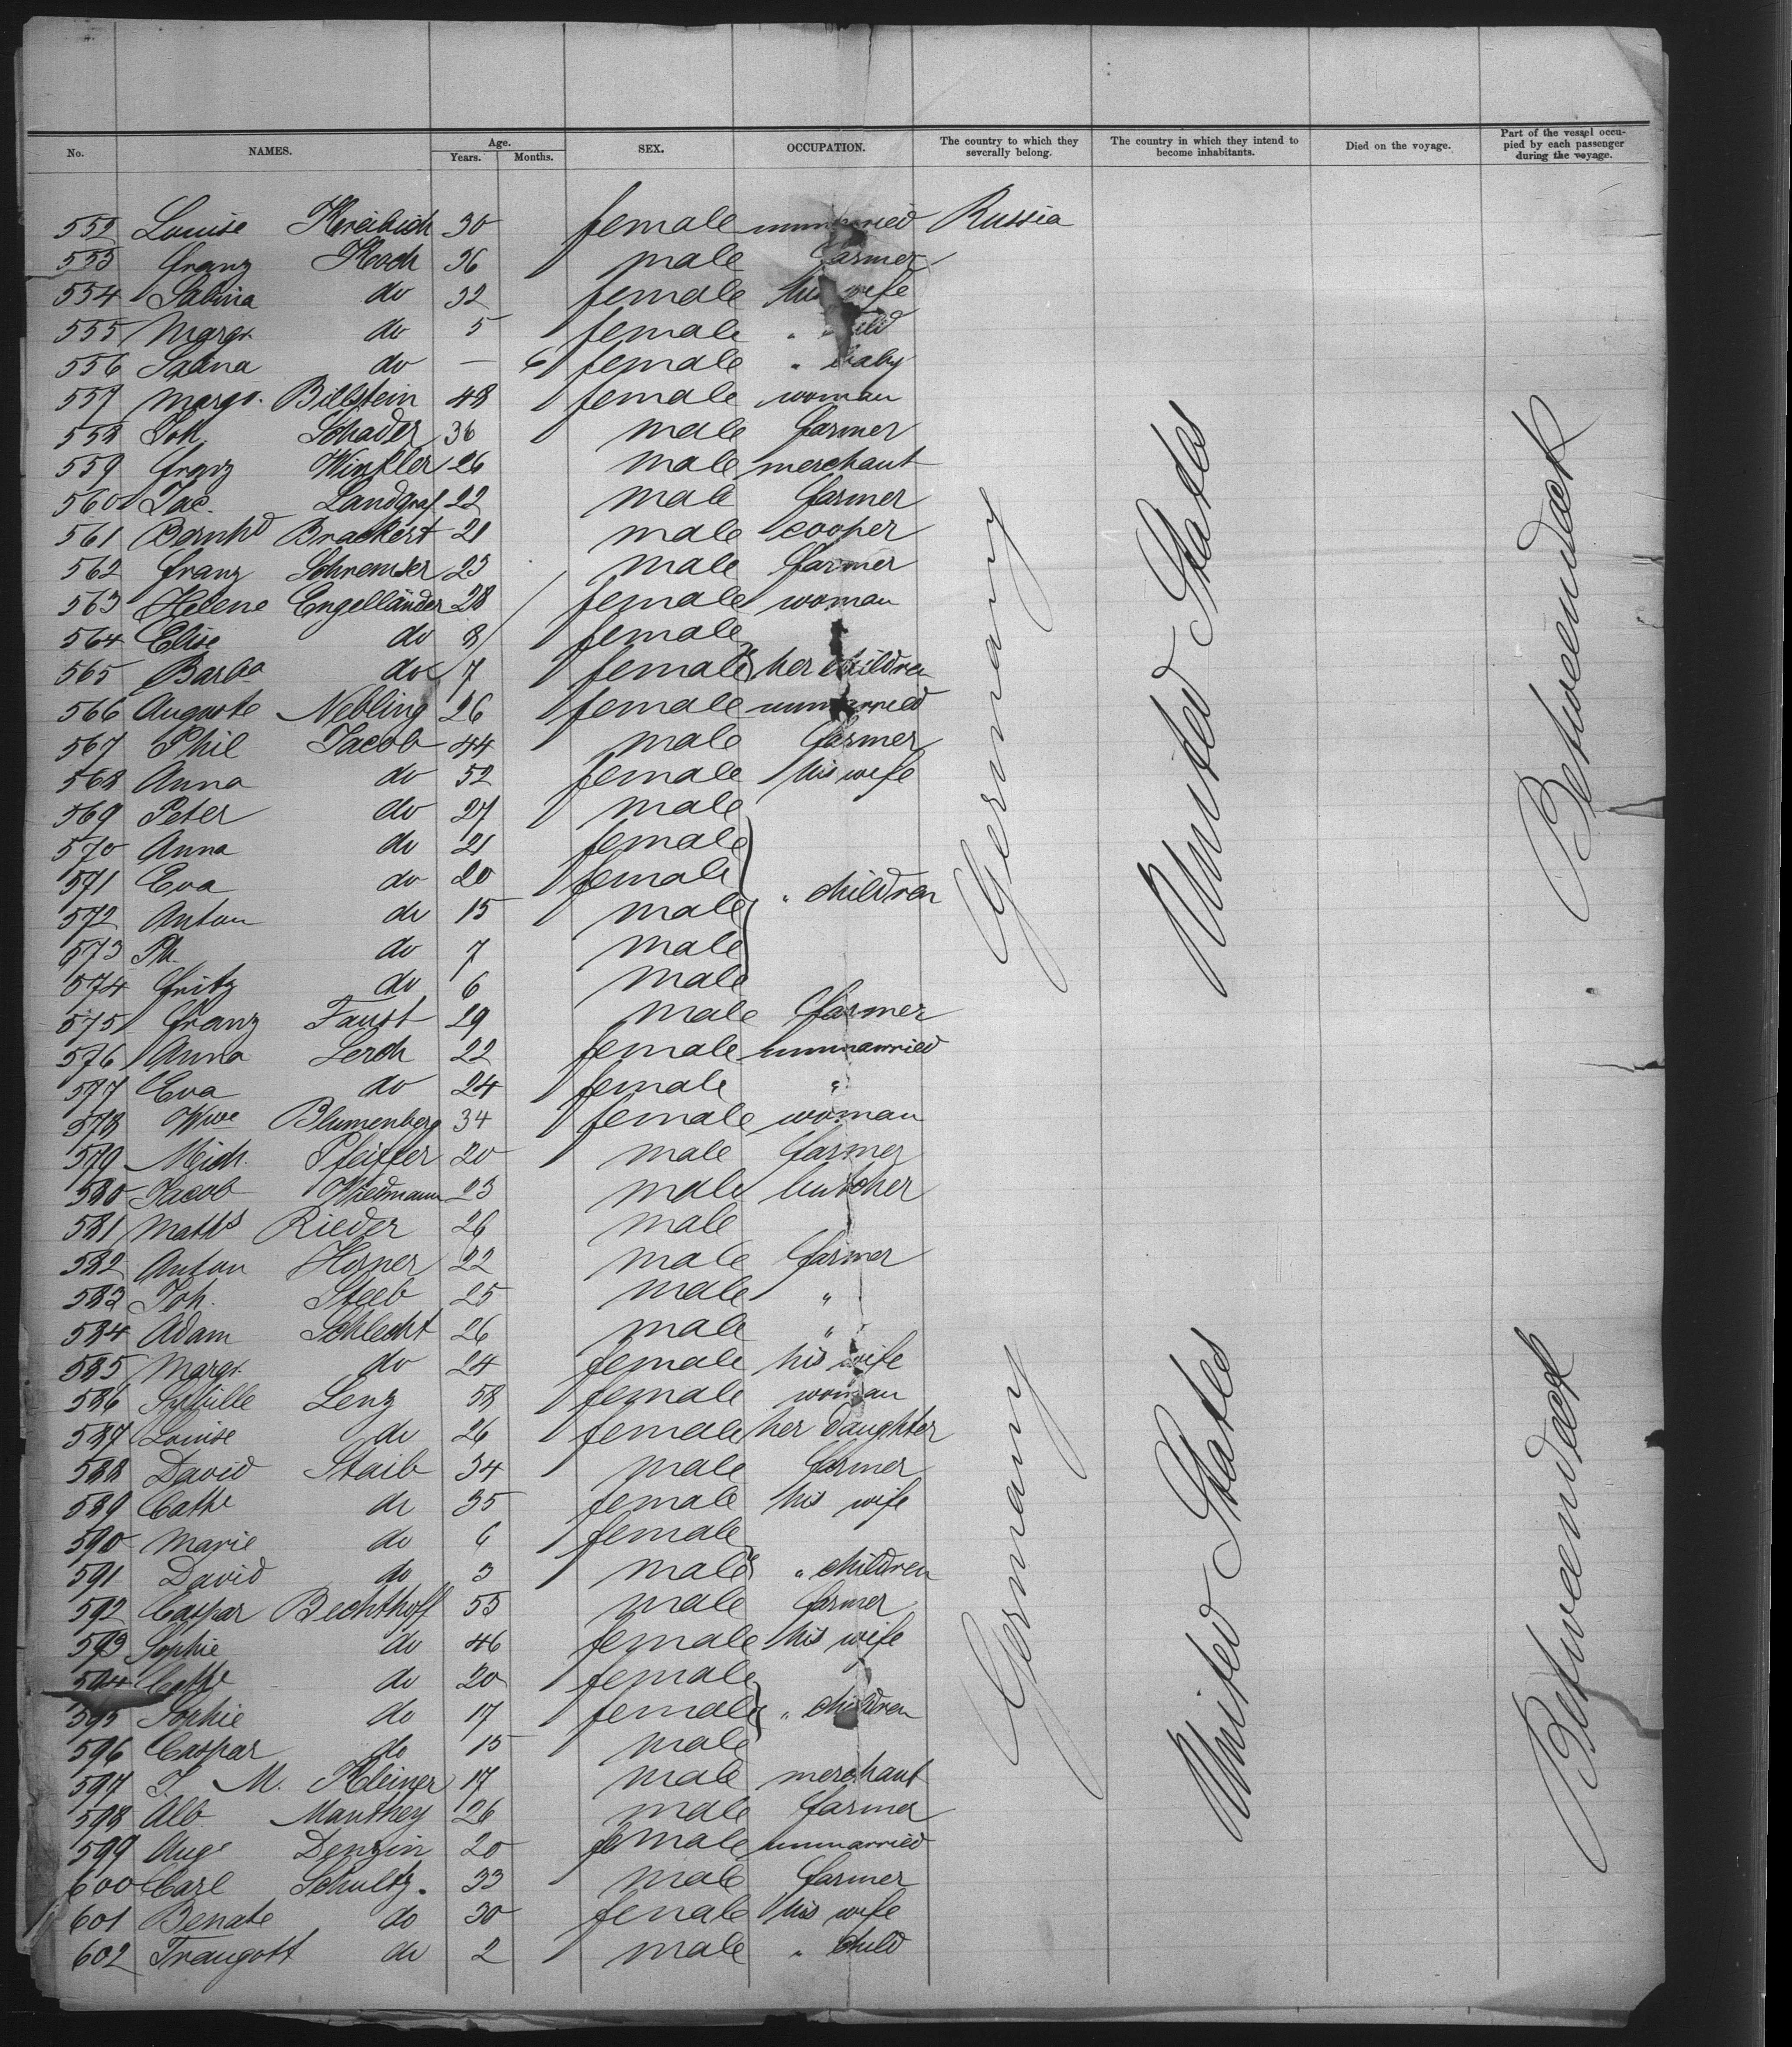 No. NAMES. Age. Years. Months. SEX. OCCUPATION. The country to which they severally belong. The country in which they intend to become inhabitants. Died on the voyage. Part of the vessel occupied by each passenger during the voyage.
552 Louise Kreibich 30 female unmarried Russia
553 Franz Koch 36 male farmer
554 Sabina do 32 female his wife
555 Margr. do 5 female " child
556 Sabina do — 6 female " baby
557 Margr. Billstein 48 female woman
558 Joh. Schader 36 male farmer
559 Franz Winkler 26 male merchant
560 Jac. Landgraf 22 male farmer
561 Bernhd Brackert 21 male cooper
562 Franz Schremser 23 male farmer
563 Helene Engelländer 28 female woman
564 Elise do 8 female
565 Barba do 7 female } her children
566 Auguste Nebling 26 female unmarried
567 Phil Jacob 44 male farmer
568 Anna do 52 female his wife
569 Peter do 27 male
570 Anna do 21 female
571 Eva do 20 female
572 Anton do 15 male } " children
573 Ph. do 7 male
574 Fritz do 6 male
575 Franz Faust 29 male farmer
576 Anna Lerch 22 female unmarried
577 Eva do 24 female "
578 Wwe Blumenberg 34 female woman
579 Mich. Pfeiffer 20 male farmer
580 Jacob Wiedmann 23 male butcher
581 Maths Rieder 26 male
582 Anton Horner 22 male farmer
583 Joh. Steeb 25 male "
584 Adam Schlecht 26 male "
585 Margr. do 24 female his wife
586 Sybille Lenz 58 female woman
587 Louise do 26 female her daughter
588 David Staib 34 male farmer
589 Cathe do 35 female his wife
590 Marie do 6 female
591 David do 3 male } " children
592 Caspar Bechthoff 55 male farmer
593 Sophie do 46 female his wife
594 Cathe do 20 female
595 Sophie do 17 female } " children
596 Caspar do 15 male
597 J. M. Kleiner 17 male merchant
598 Alb. Manthey 26 male farmer
599 Auge Denzin 20 female unmarried
600 Carl Schultz. 33 male farmer
601 Benate do 30 female his wife
602 Traugott do 2 male " child
Germany
United States
Betweendeck
Germany
United States
Betweendeck